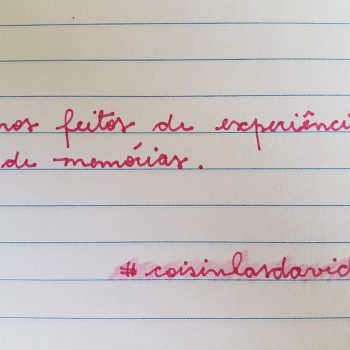 mos feitos de experiênci
de memórias.
#coisinhasdavid